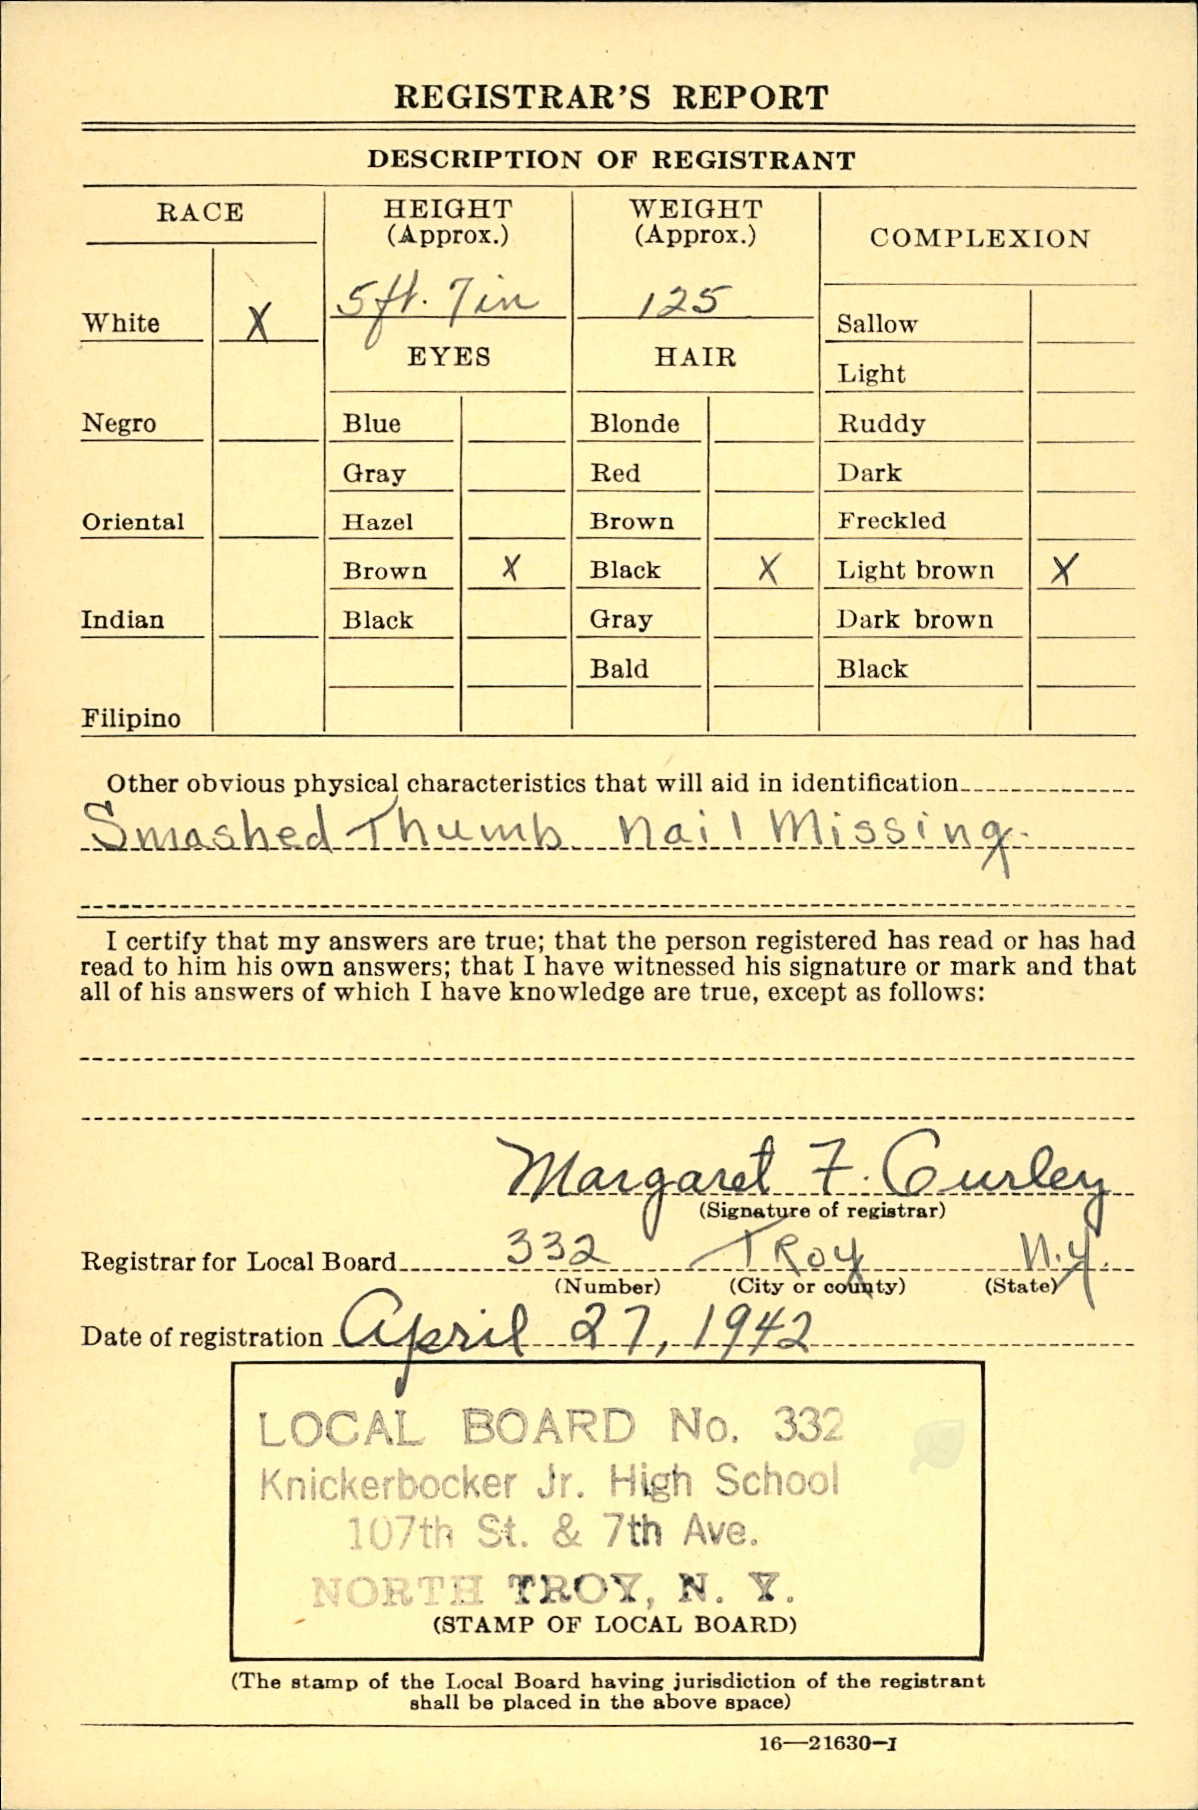 REGISTRAR'S REPORT
DESCRIPTION OF REGISTRANT
RACE
HEIGHT
(Approx.)
WEIGHT
(Approx.)
COMPLEXION
5 ft. 7 in
125
White X
Sallow
EYES
HAIR
Light
Negro
Blue
Blonde
Ruddy
Gray
Red
Dark
Oriental
Hazel
Brown
Freckled
Brown X
Black X
Light brown X
Indian
Black
Gray
Dark brown
Bald
Black
Filipino
Other obvious physical characteristics that will aid in identification
Smashed Thumb nail Missing.
I certify that my answers are true; that the person registered has read or has had
read to him his own answers; that I have witnessed his signature or mark and that
all of his answers of which I have knowledge are true, except as follows:
Margaret F. Curley
(Signature of registrar)
Registrar for Local Board 332 Troy N.Y.
(Number) (City or county) (State)
Date of registration April 27, 1942
LOCAL BOARD No. 332
Knickerbocker Jr. High School
107th St. & 7th Ave.
NORTH TROY, N. Y.
(STAMP OF LOCAL BOARD)
(The stamp of the Local Board having jurisdiction of the registrant
shall be placed in the above space)
16—21630-1